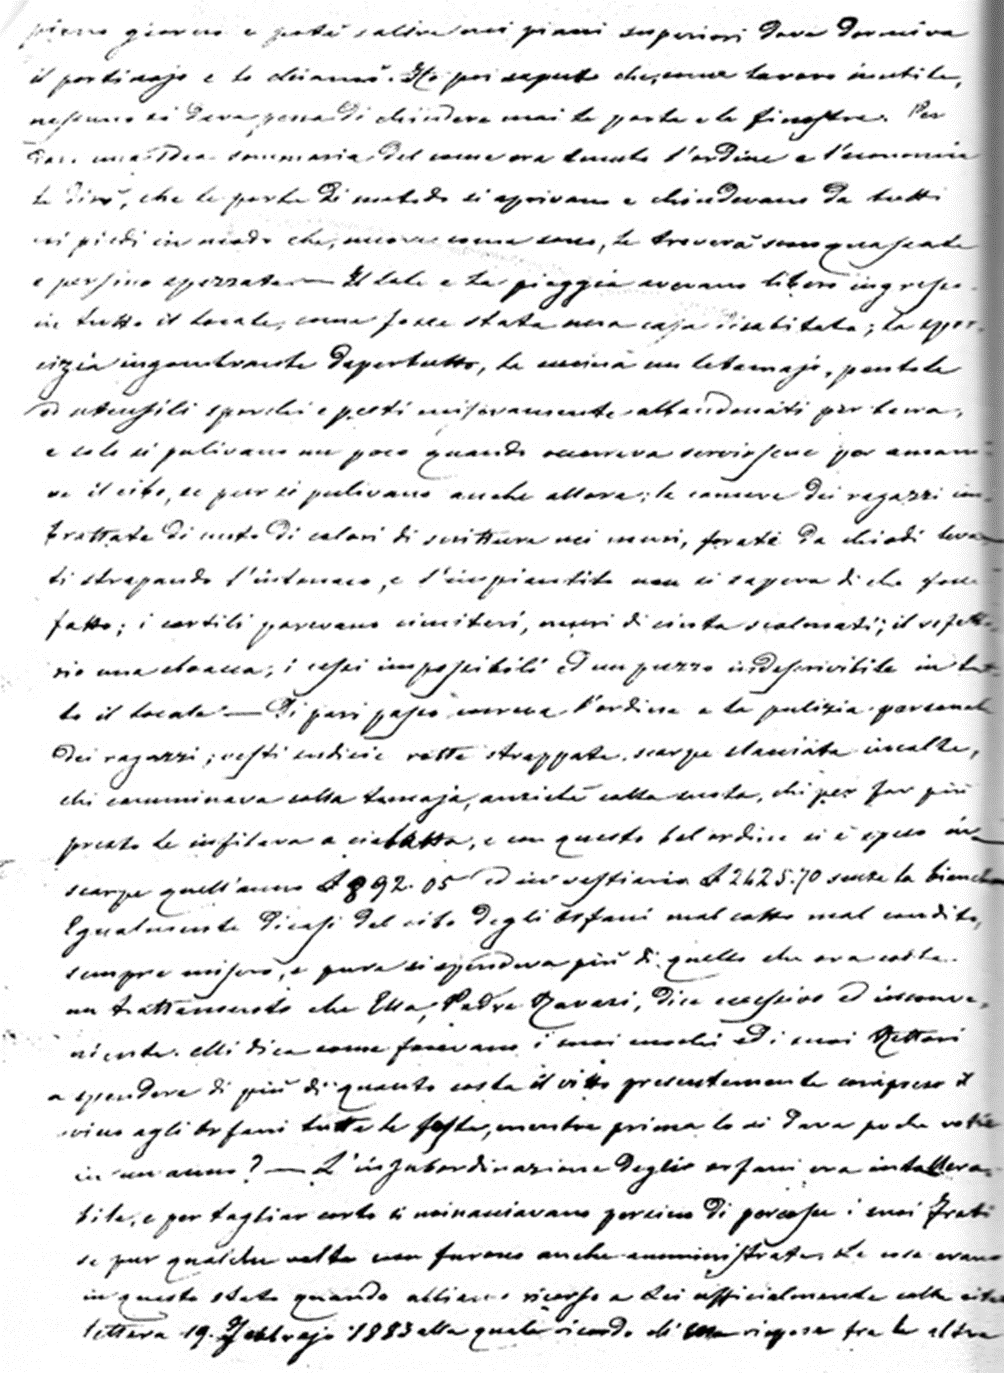 pieno giorno e potè salire nei piani superiori dove dormiva
il portinajo e lo chiamò. Ho poi saputo che, come lavoro inutile,
nessuno si dava pena di chiudere mai le porte e le finestre. Per
dare una idea sommaria del come era tenuto l'ordine e l'economia
le dirò, che le porte di metodo si aprivano e chiudevano da tutti
coi piedi in modo che, nuove come sono, le troverà sconquassate
e persino spezzate — Il sole e la pioggia avevano libero ingresso
in tutto il locale, come fosse stata una casa disabitata; la spor-
cizia ingombrante dapertutto, la cucina un letamajo, pentole
ed utensili sporchi e pesti miseramente abbandonati per terra,
e solo si pulivano un poco quando occorreva servirsene per ammani-
re il cibo, se pur si pulivano anche allora; le camere dei ragazzi im-
brattate di unto di colori di scrittura nei muri, forate da chiodi leva-
ti strapando l'intonaco, e l'impiantito non si sapeva di che fosse
fatto; i cortili parevano cimiteri, muri di cinta scalcinati; il refetto-
rio una cloaca; i cessi impossibili ed un puzzo indescrivibile in tut-
to il locale — Di pari passo correva l'ordine e la pulizia personale
dei ragazzi; vesti sudicie rotte strappate, scarpe slacciate
chi camminava colla tomaja, anzichè colla suola, chi per far più
presto le infilava a ciabatta, e con questo bel ordine si è speso in
scarpe quell'anno £ 892.05 ed in vestiario £ 2425.70 senza la biancheria
Egualmente dicasi del cibo degli orfani mal cotto mal condito,
sempre misero, e pure si spendeva più di quello che ora costa
un trattamento che Ella, Padre Ravasi, dice eccessivo ed inconve-
niente. Mi dica come facevano i suoi cuochi ed i suoi Rettori
a spendere di più di quanto costa il vitto presentemente compreso il
vino agli orfani tutte le feste, mentre prima lo si dava poche volte
in un anno? — L'insubordinazione degli orfani era intollera-
bile, e per tagliar corto si minacciavano persino di percosse i suoi Frati
se pur qualche volta non furono anche amministrate. Le cose erano
in questo stato quando abbiamo ricorso a Lei ufficialmente colla
lettera 19. Febbrajo 1883 alla quale ricordo di rispose fra le altre